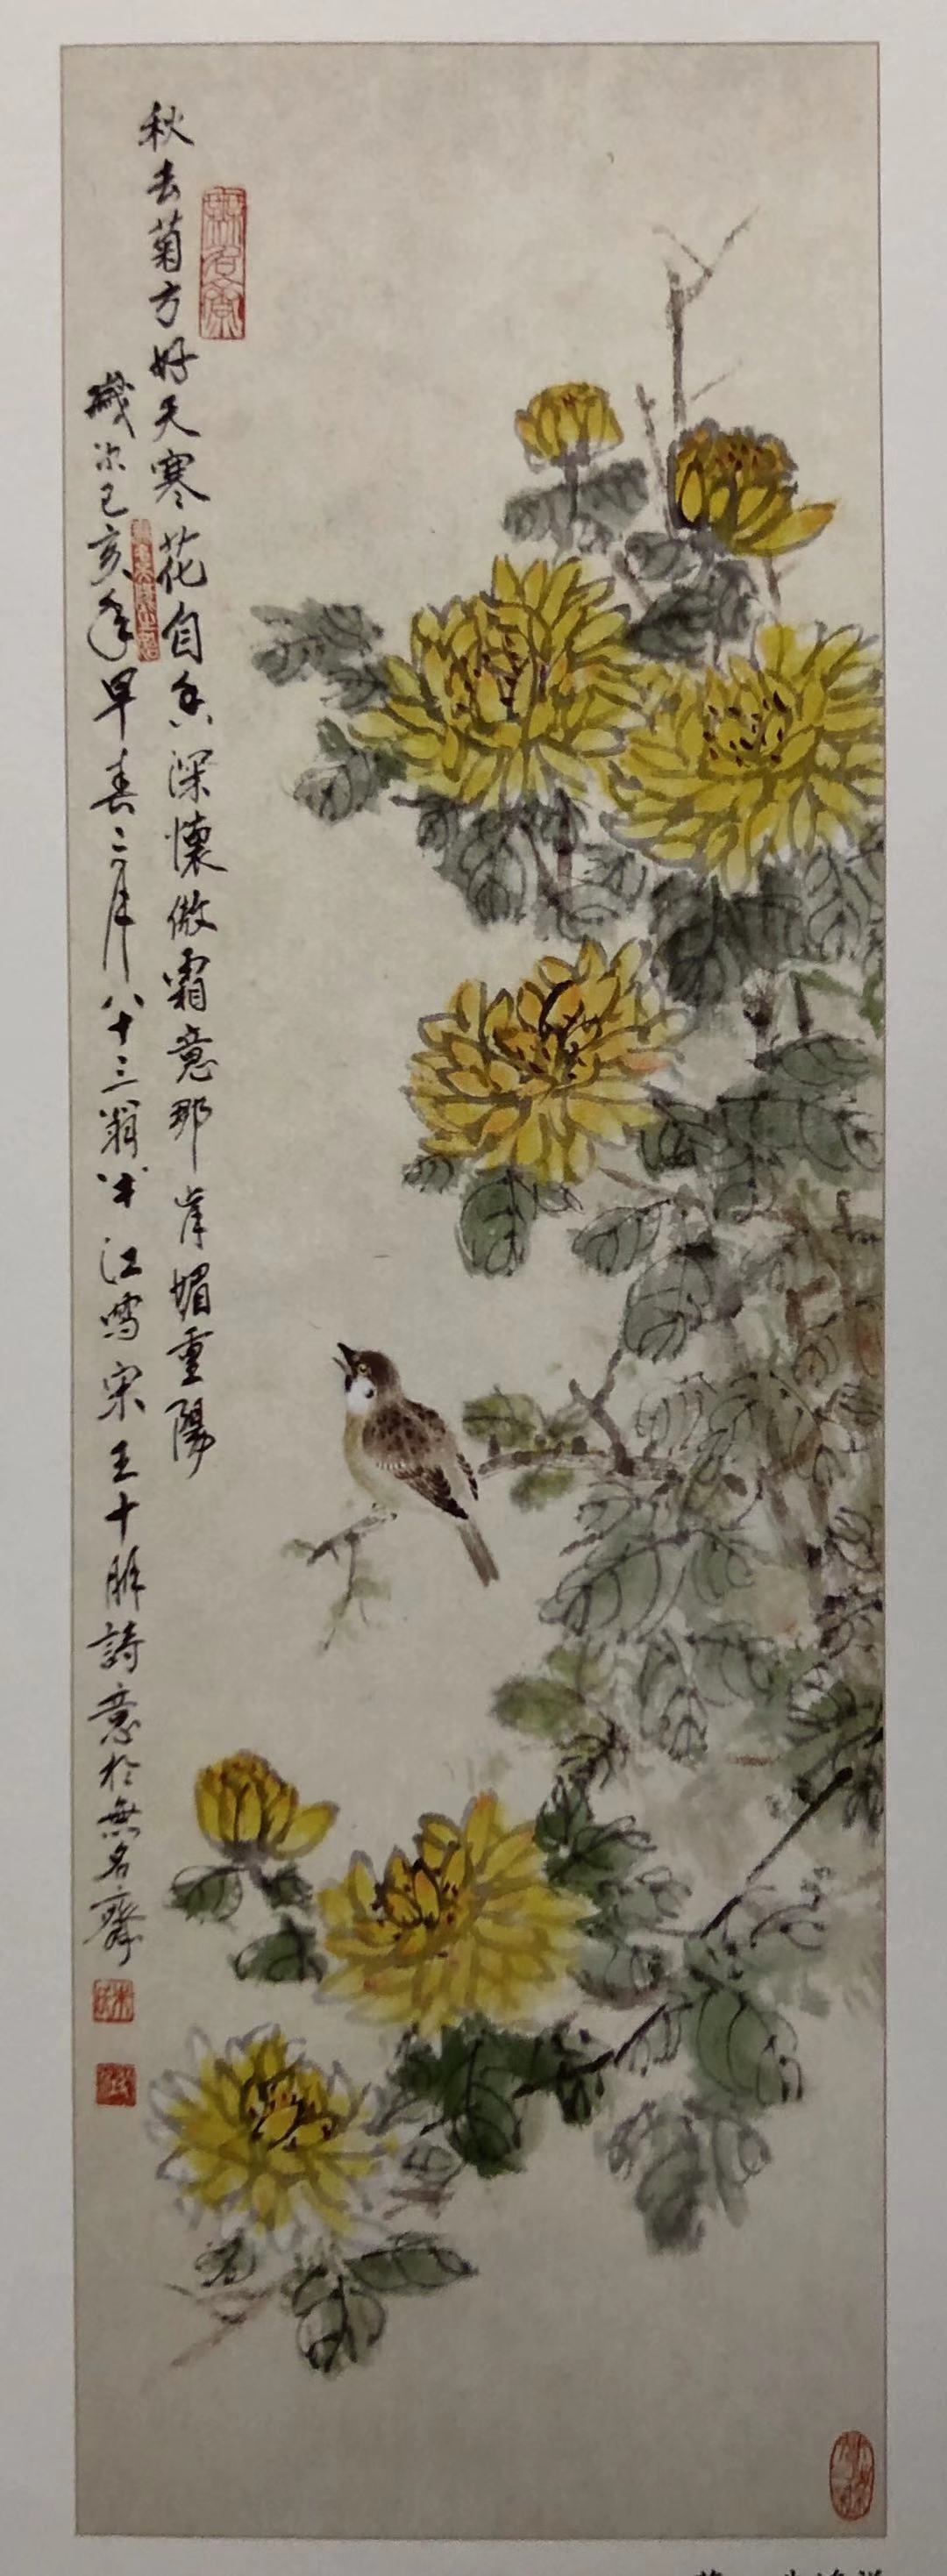 秋去菊方好天寒花自香深懷傲霜意那肯媚重陽
歲次己亥年早春二月八十三翁 江寫宋王十朋詩意於無名齋
無名齋